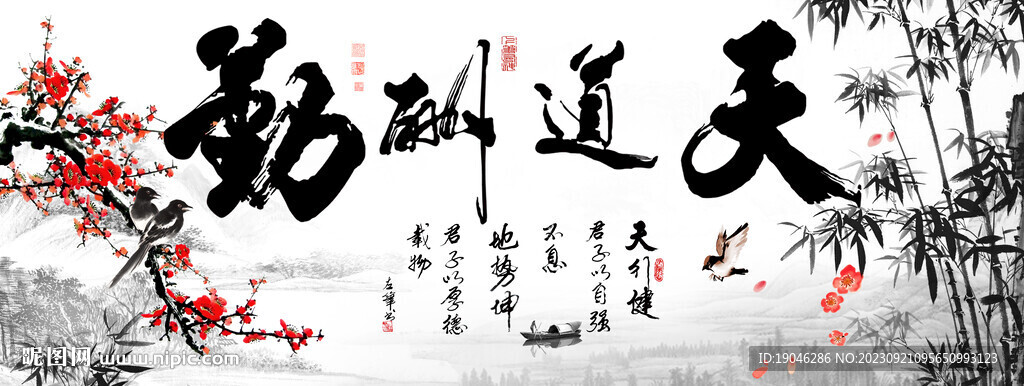 天道酬勤
天行健
君子以自强
不息
地势坤
君子以厚德
载物
昵图网 www.nipic.com
ID:19046286 NO:20230921095650993123